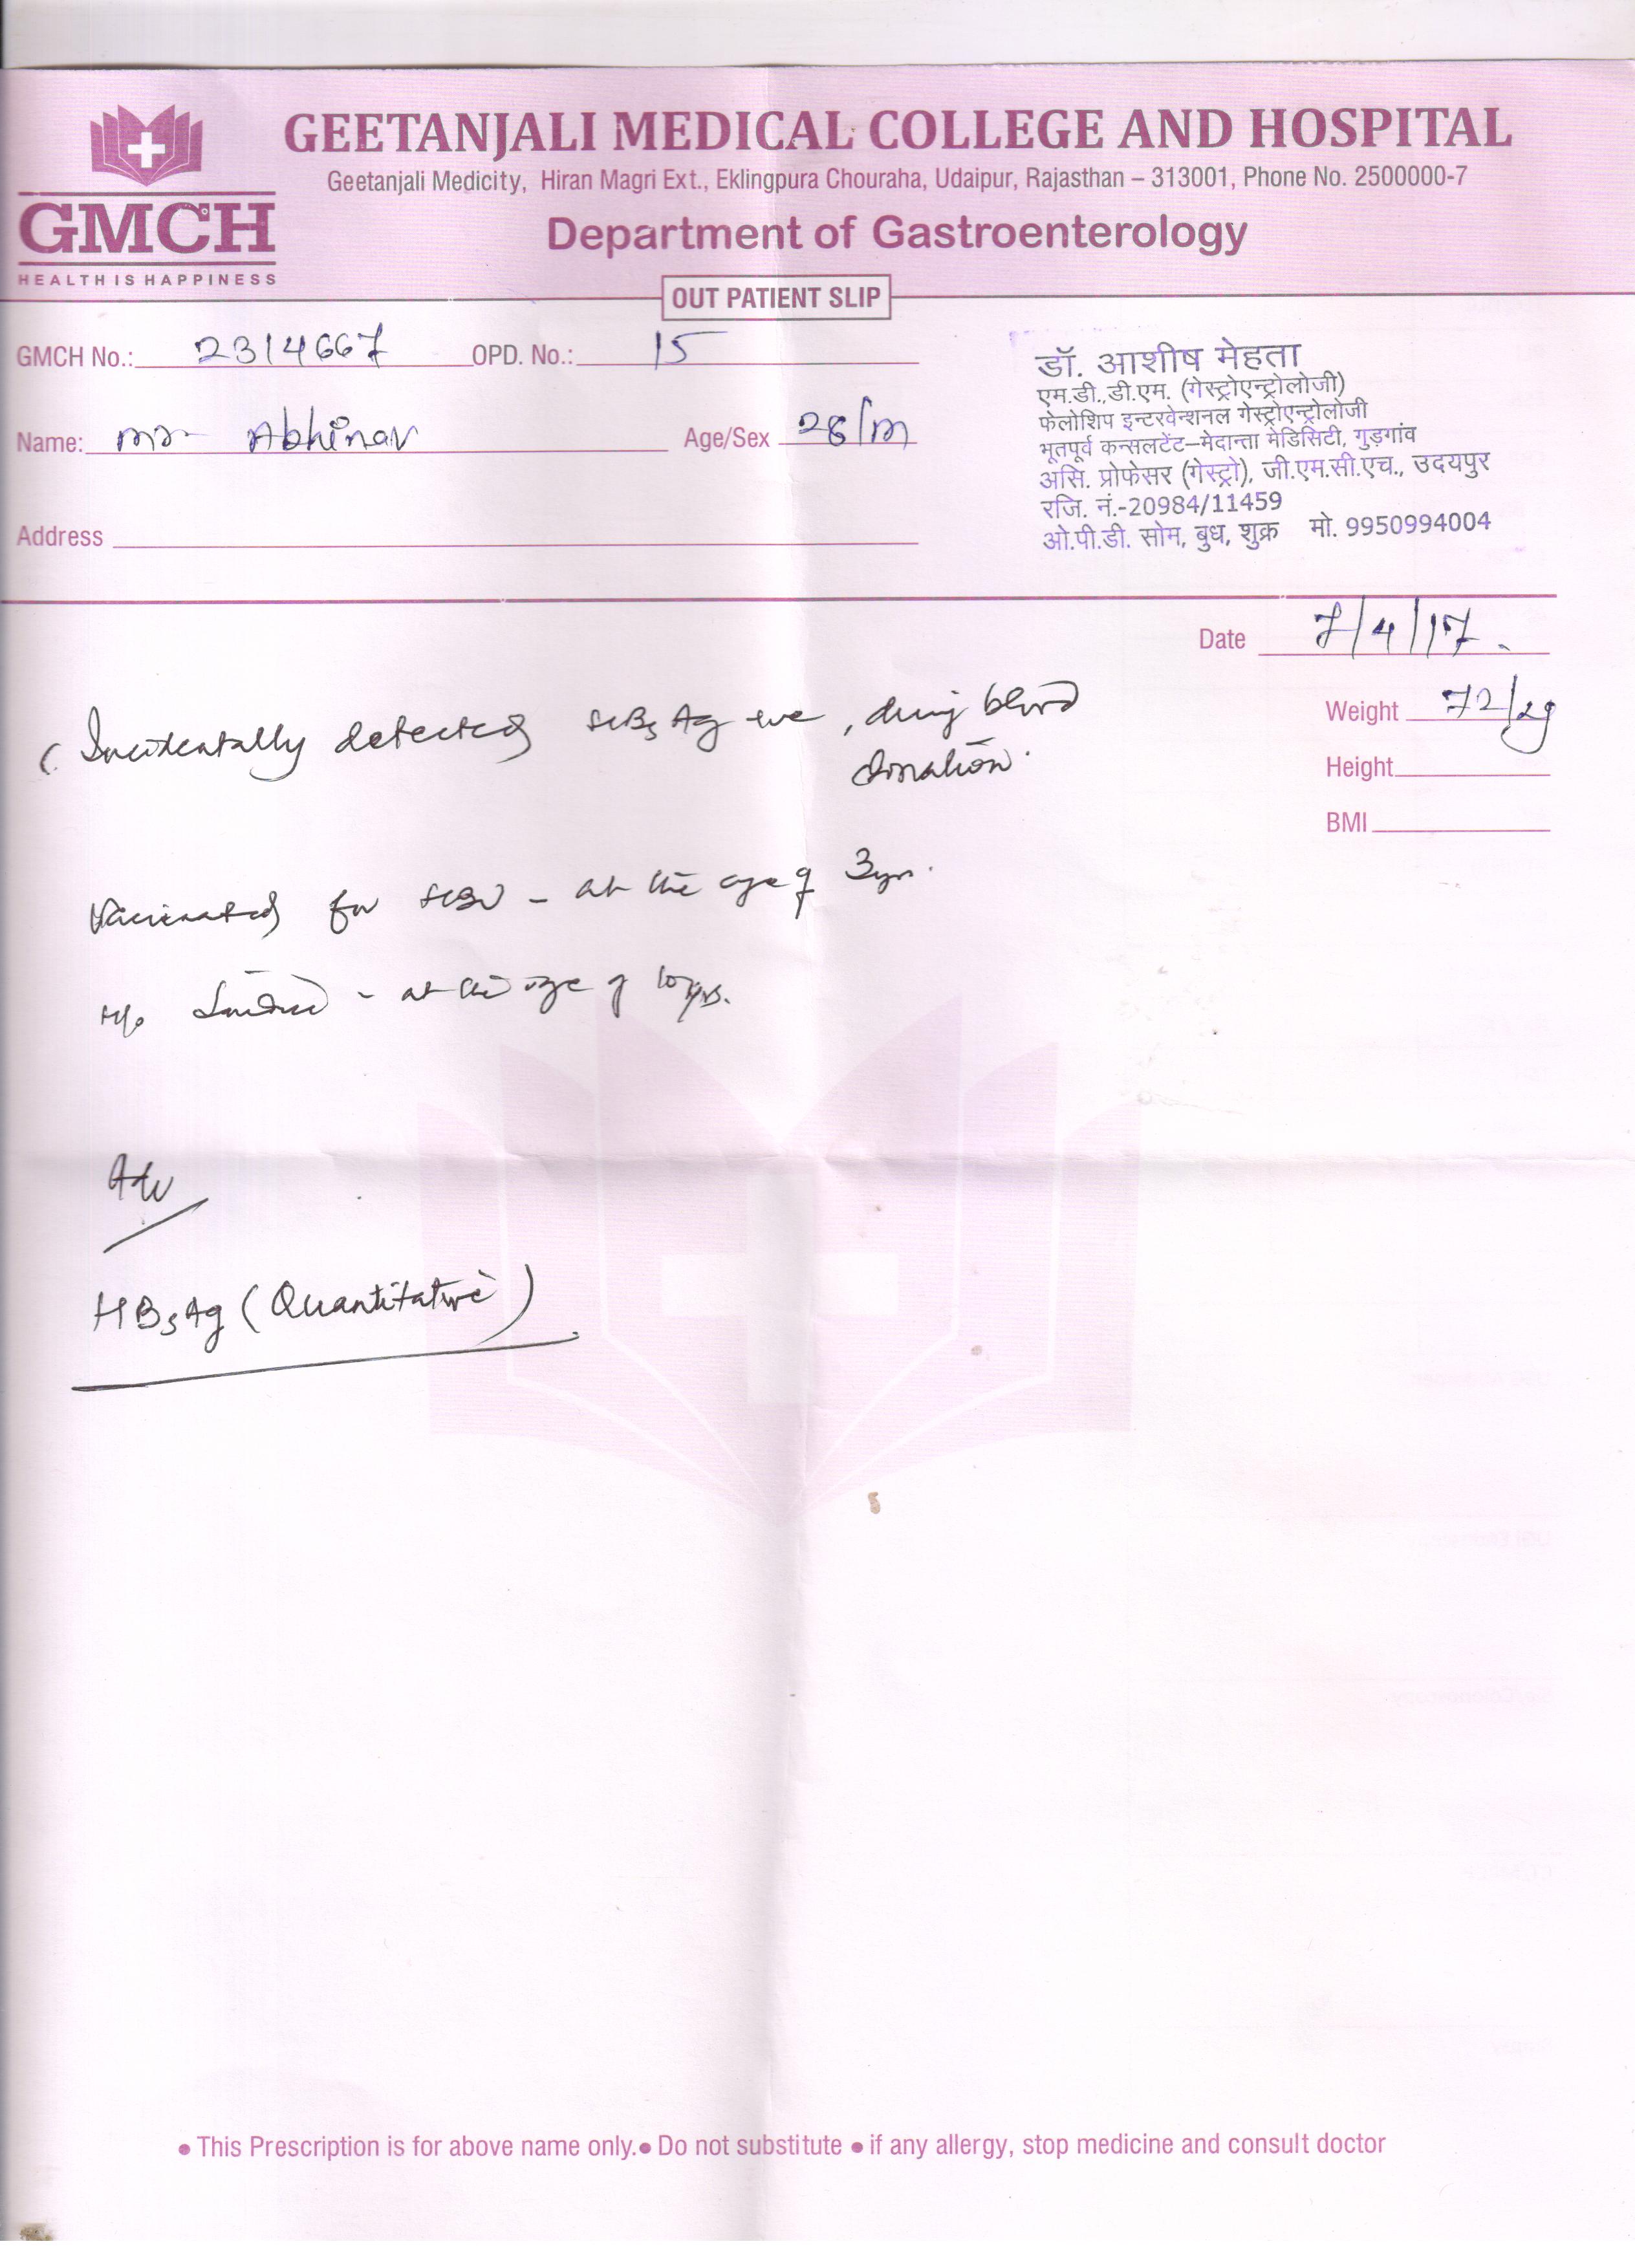 GEETANJALI MEDICAL COLLEGE AND HOSPITAL
Geetanjali Medicity, Hiran Magri Ext., Eklingpura Chouraha, Udaipur, Rajasthan – 313001, Phone No. 2500000-7
GMCH
HEALTH IS HAPPINESS
Department of Gastroenterology
OUT PATIENT SLIP
GMCH No.: 2314667 OPD. No.: 15
Name: Mr Abhinav Age/Sex 28/M
Address
डॉ. आशीष मेहता
एम.डी.,डी.एम. (गेस्ट्रोएन्ट्रोलोजी)
फेलोशिप इन्टरवेन्शनल गेस्ट्रोएन्ट्रोलोजी
भूतपूर्व कन्सलटेंट–मेदान्ता मेडिसिटी, गुड़गांव
असि. प्रोफेसर (गेस्ट्रो), जी.एम.सी.एच., उदयपुर
रजि. नं.-20984/11459
ओ.पी.डी. सोम, बुध, शुक्र मो. 9950994004
Date 7/4/17
Weight 72/kg
Height
BMI
Incidentally detected HBsAg +ve, during blood
donation.
Vaccinated for HBV - at the age of 3yrs.
H/o - at the age of 10yrs.
Adv
HBsAg (Quantitative)
• This Prescription is for above name only. • Do not substitute • if any allergy, stop medicine and consult doctor